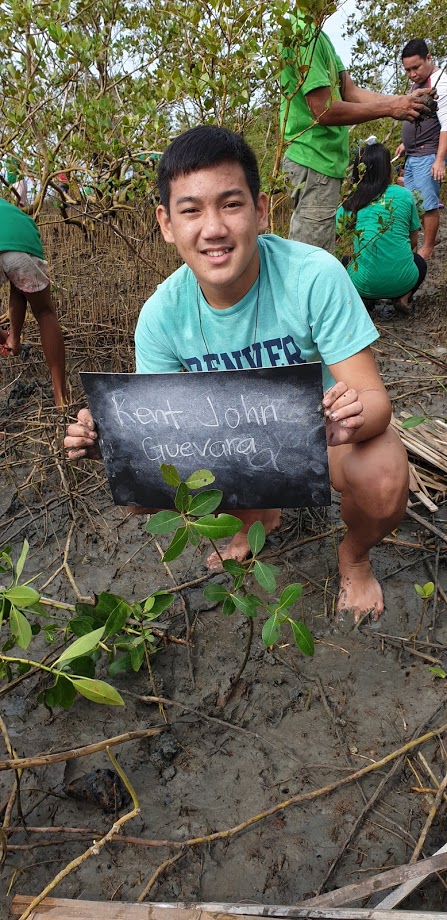 DENVER
Kent John
Guevara